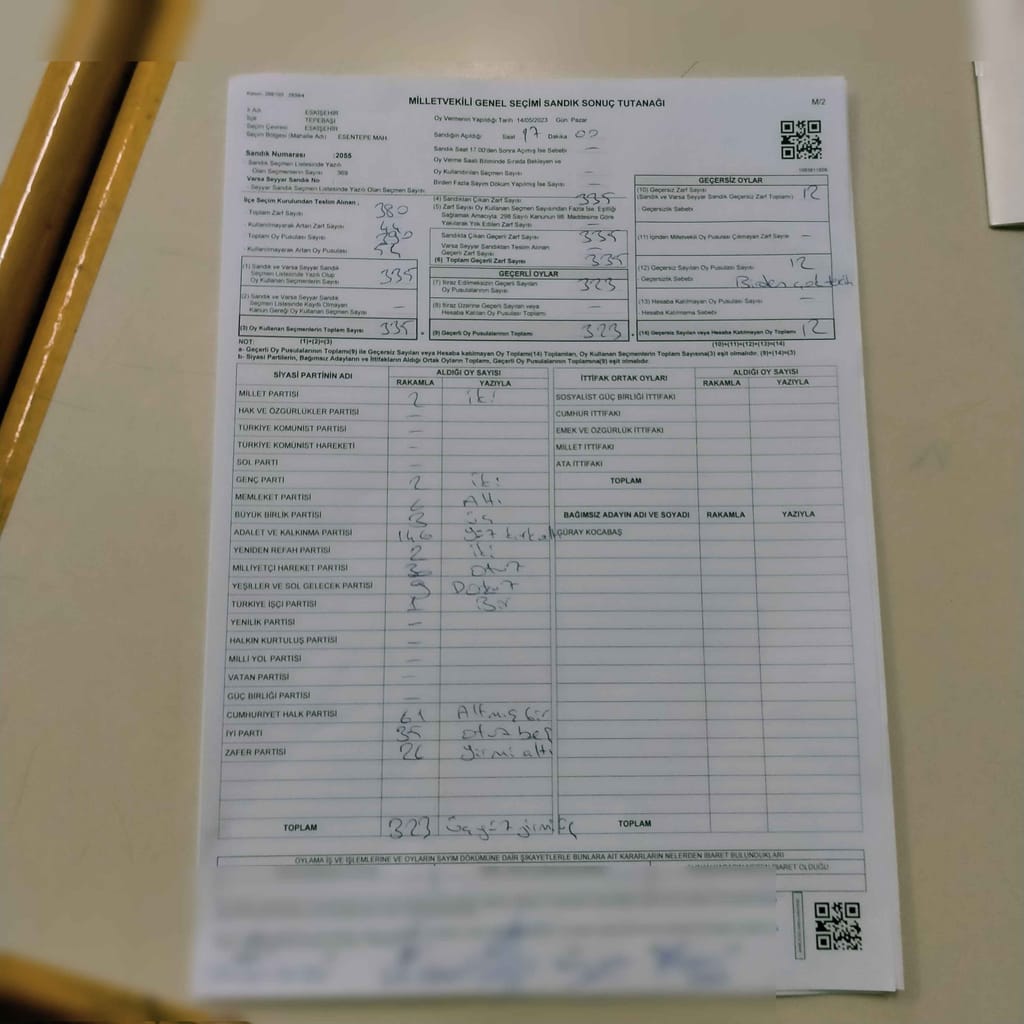 MİLLETVEKİLİ GENEL SEÇİMİ SANDIK SONUÇ TUTANAĞI
M/2
İl Adı ESKİŞEHİR
İlçe TEPEBAŞI
Seçim Çevresi ESKİŞEHİR
Seçim Bölgesi (Mahalle Adı) ESENTEPE MAH.
Oy Vermenin Yapıldığı Tarih 14/05/2023 Gün Pazar
Sandığın Açıldığı Saat 17 Dakika 00
Sandık Saat 17.00'den Sonra Açılmış İse Sebebi —
Oy Verme Saati Bitiminde Sırada Bekleyen ve
Oy Kullandırılan Seçmen Sayısı —
Birden Fazla Sayım Döküm Yapılmış İse Sayısı —
Sandık Numarası :2055
Sandık Seçmen Listesinde Yazılı
Olan Seçmenlerin Sayısı 369
Varsa Seyyar Sandık No
Seyyar Sandık Seçmen Listesinde Yazılı Olan Seçmen Sayısı
İlçe Seçim Kurulundan Teslim Alınan
Toplam Zarf Sayısı 380
Kullanılmayarak Artan Zarf Sayısı
Toplam Oy Pusulası Sayısı
Kullanılmayarak Artan Oy Pusulası
(1) Sandık ve Varsa Seyyar Sandık
Seçmen Listesinde Yazılı Olup
Oy Kullanan Seçmenlerin Sayısı 335
(2) Sandık ve Varsa Seyyar Sandık
Seçmen Listesinde Kaydı Olmayan
Kanun Gereği Oy Kullanan Seçmen Sayısı —
(3) Oy Kullanan Seçmenlerin Toplam Sayısı 335
(1)+(2)=(3)
(4) Sandıktan Çıkan Zarf Sayısı 335
(5) Zarf Sayısı Oy Kullanan Seçmen Sayısından Fazla İse, Eşitliği
Sağlamak Amacıyla, 298 Sayılı Kanunun 98. Maddesine Göre
Yakılarak Yok Edilen Zarf Sayısı —
Sandıkta Çıkan Geçerli Zarf Sayısı 335
Varsa Seyyar Sandıktan Teslim Alınan
Geçerli Zarf Sayısı —
(6) Toplam Geçerli Zarf Sayısı 335
GEÇERLİ OYLAR
(7) İtiraz Edilmeksizin Geçerli Sayılan
Oy Pusulalarının Sayısı 323
(8) İtiraz Üzerine Geçerli Sayılan veya
Hesaba Katılan Oy Pusulası Toplamı —
(9) Geçerli Oy Pusulalarının Toplamı 323
GEÇERSİZ OYLAR
(10) Geçersiz Zarf Sayısı
(Sandık ve Varsa Seyyar Sandık Geçersiz Zarf Toplamı) 12
Geçersizlik Sebebi
(11) İçinden Milletvekili Oy Pusulası Çıkmayan Zarf Sayısı —
(12) Geçersiz Sayılan Oy Pusulası Sayısı 12
Geçersizlik Sebebi
(13) Hesaba Katılmayan Oy Pusulası Sayısı —
Hesaba Katılmama Sebebi
(14) Geçersiz Sayılan veya Hesaba Katılmayan Oy Toplamı 12
(10)+(11)+(12)+(13)=(14)
NOT:
a- Geçerli Oy Pusulaları Toplamı(9) ile Geçersiz Sayılan veya Hesaba katılmayan Oy Toplamı(14) Toplamları, Oy Kullanan Seçmenlerin Toplam Sayısına(3) eşit olmalıdır. (9)+(14)=(3)
b- Siyasi Partilerin, Bağımsız Adayların ve İttifakların Aldığı Ortak Oyların Toplamı, Geçerli Oy Pusulalarının Toplamına(9) eşit olmalıdır.
SİYASİ PARTİNİN ADI ALDIĞI OY SAYISI
RAKAMLA YAZIYLA
MİLLET PARTİSİ 2 iki
HAK VE ÖZGÜRLÜKLER PARTİSİ —
TÜRKİYE KOMÜNİST PARTİSİ —
TÜRKİYE KOMÜNİST HAREKETİ —
SOL PARTİ —
GENÇ PARTİ 2 iki
MEMLEKET PARTİSİ 6 Altı
BÜYÜK BİRLİK PARTİSİ 3 üç
ADALET VE KALKINMA PARTİSİ 146 yüz kırk altı
YENİDEN REFAH PARTİSİ 2 iki
MİLLİYETÇİ HAREKET PARTİSİ 30 otuz
YEŞİLLER VE SOL GELECEK PARTİSİ 9 Dokuz
TÜRKİYE İŞÇİ PARTİSİ 1 Bir
YENİLİK PARTİSİ —
HALKIN KURTULUŞ PARTİSİ —
MİLLİ YOL PARTİSİ —
VATAN PARTİSİ —
GÜÇ BİRLİĞİ PARTİSİ —
CUMHURİYET HALK PARTİSİ 61 Altmış bir
İYİ PARTİ 35 otuz beş
ZAFER PARTİSİ 26 yirmi altı
TOPLAM 323 üç yüz yirmi üç
İTTİFAK ORTAK OYLARI ALDIĞI OY SAYISI
RAKAMLA YAZIYLA
SOSYALİST GÜÇ BİRLİĞİ İTTİFAKI
CUMHUR İTTİFAKI
EMEK VE ÖZGÜRLÜK İTTİFAKI
MİLLET İTTİFAKI
ATA İTTİFAKI
TOPLAM
BAĞIMSIZ ADAYIN ADI VE SOYADI RAKAMLA YAZIYLA
GÜRAY KOCABAŞ
TOPLAM
OYLAMA İŞ VE İŞLEMLERİNE VE OYLARIN SAYIM DÖKÜMÜNE DAİR ŞİKAYETLERLE BUNLARA AİT KARARLARIN NELERDEN İBARET BULUNDUKLARI